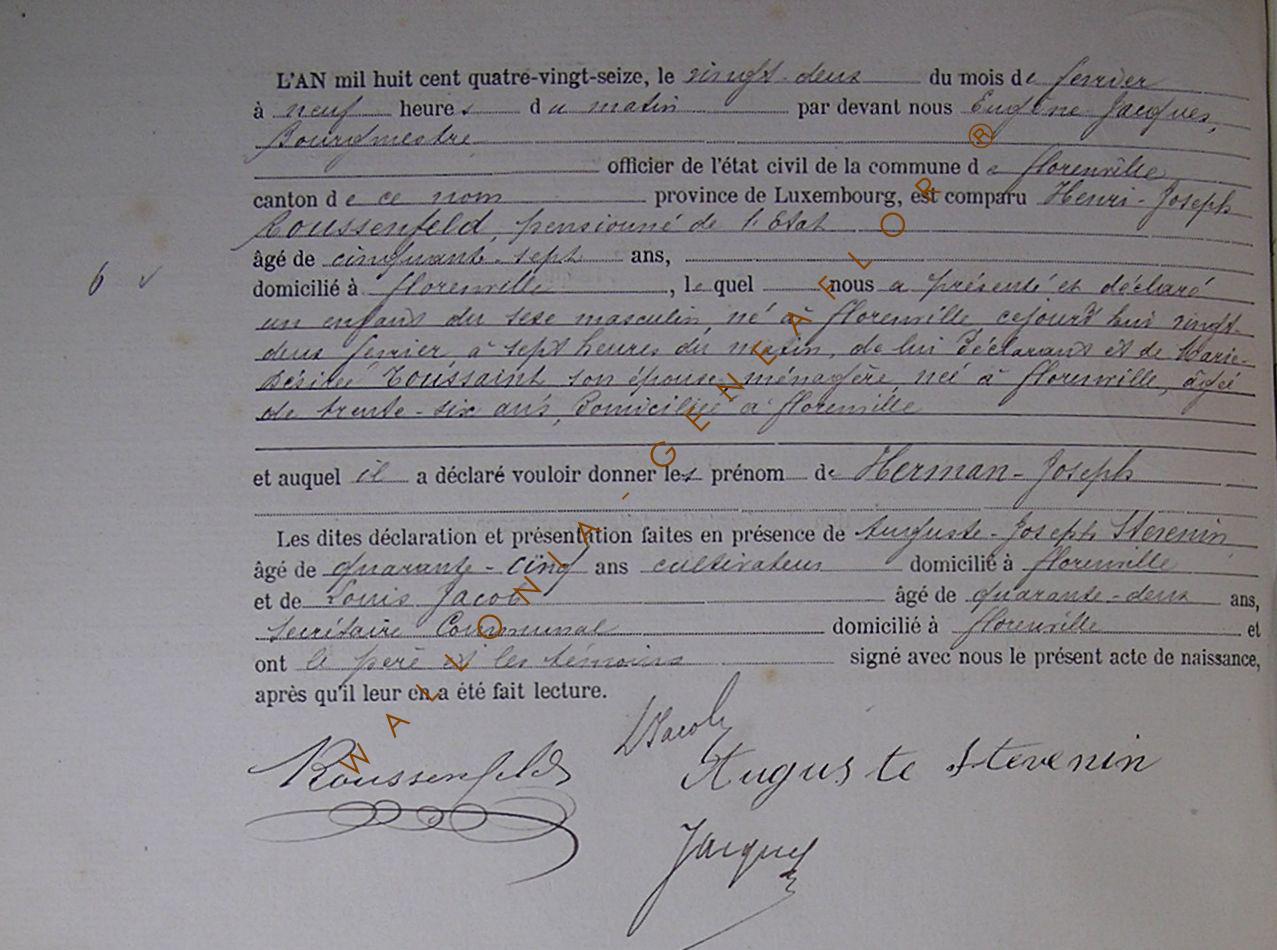 L'AN mil huit cent quatre-vingt-seize, le vingt-deux du mois de fevrier
à neuf heures du matin par devant nous Eugène Jacques,
Bourgmestre
officier de l'état civil de la commune de florenville
canton de ce nom province de Luxembourg, est comparu Henri-Joseph
Roussenfeld, pensionné de l'Etat
âgé de cinquante-sept ans,
6 domicilié à florenville, le quel nous a présenté et déclaré
un enfant du sexe masculin, né à florenville, cejourd'hui vingt-
deux fevrier, à sept heures du matin, de lui Déclarant et de Marie-
Désirée Toussaint son épouse ménagère, née à florenville, âgée
de trente-six ans, Domiciliée à florenville
et auquel il a déclaré vouloir donner les prénom de Herman-Joseph
Les dites déclaration et présentation faites en présence de Auguste-Joseph Stevenin
âgé de quarante-cinq ans cultivateur domicilié à florenville
et de Louis Jacob âgé de quarante-deux ans,
Secrétaire Communal domicilié à florenville et
ont le père et les témoins signé avec nous le présent acte de naissance,
après qu'il leur en a été fait lecture.
LJacob
Roussenfeld Auguste Stevenin
Jacques
WALLONIA-GENEAFLOR®